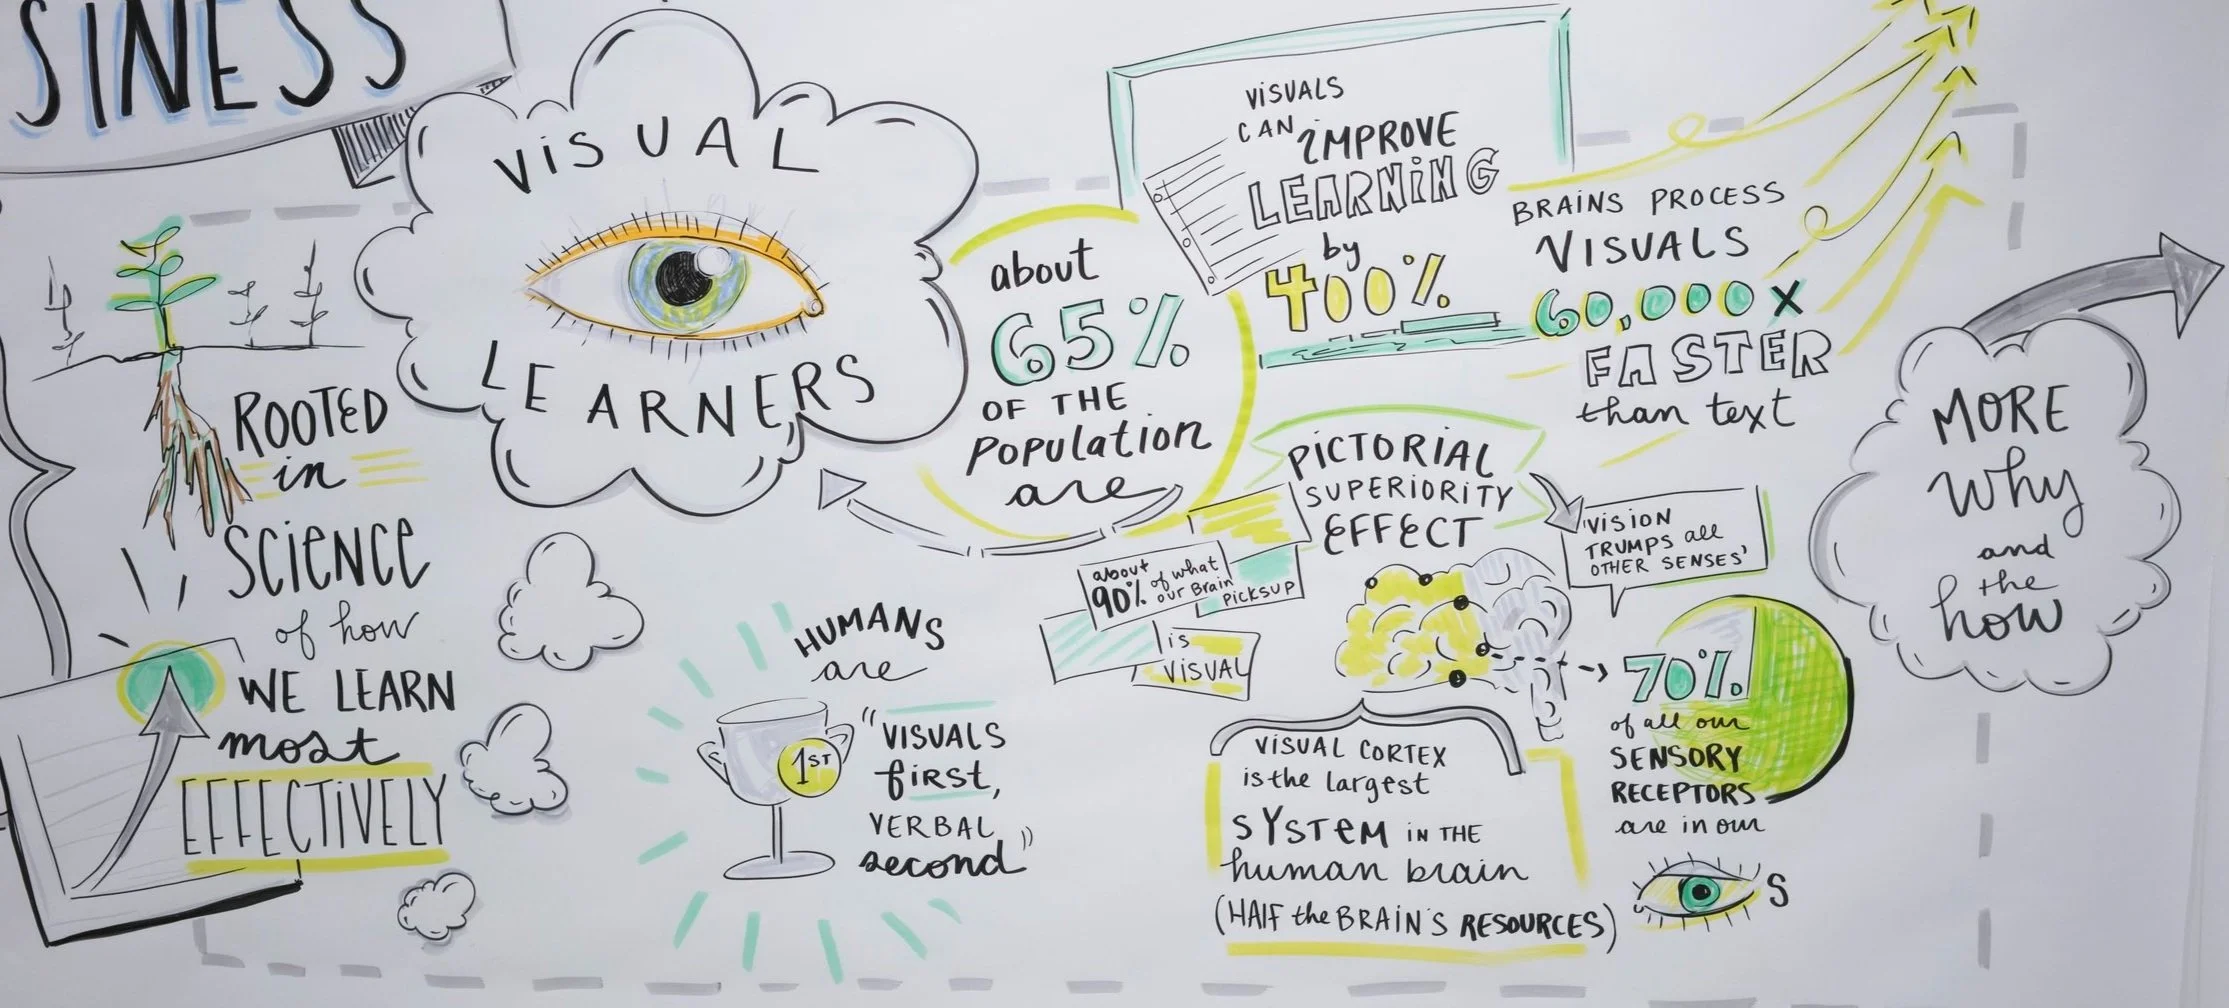 SINESS
ROOTED
in
SCIENCE
of how
WE LEARN
most
EFFECTIVELY
VISUAL
LEARNERS
about
65%
OF THE
Population
are
VISUALS
CAN IMPROVE
LEARNING
by
400%
BRAINS PROCESS
VISUALS
60,000 X
FASTER
than text
HUMANS
are
1ST
"VISUALS
first,
VERBAL
second"
about
90% of what
our Brain
PICKSUP
is
VISUAL
PICTORIAL
SUPERIORITY
EFFECT
'VISION
TRUMPS all
OTHER SENSES'
VISUAL CORTEX
is the largest
SYSTEM IN THE
human brain
(HALF the BRAIN'S RESOURCES)
70%
of all our
SENSORY
RECEPTORS
are in our
S
MORE
why
and
the
how